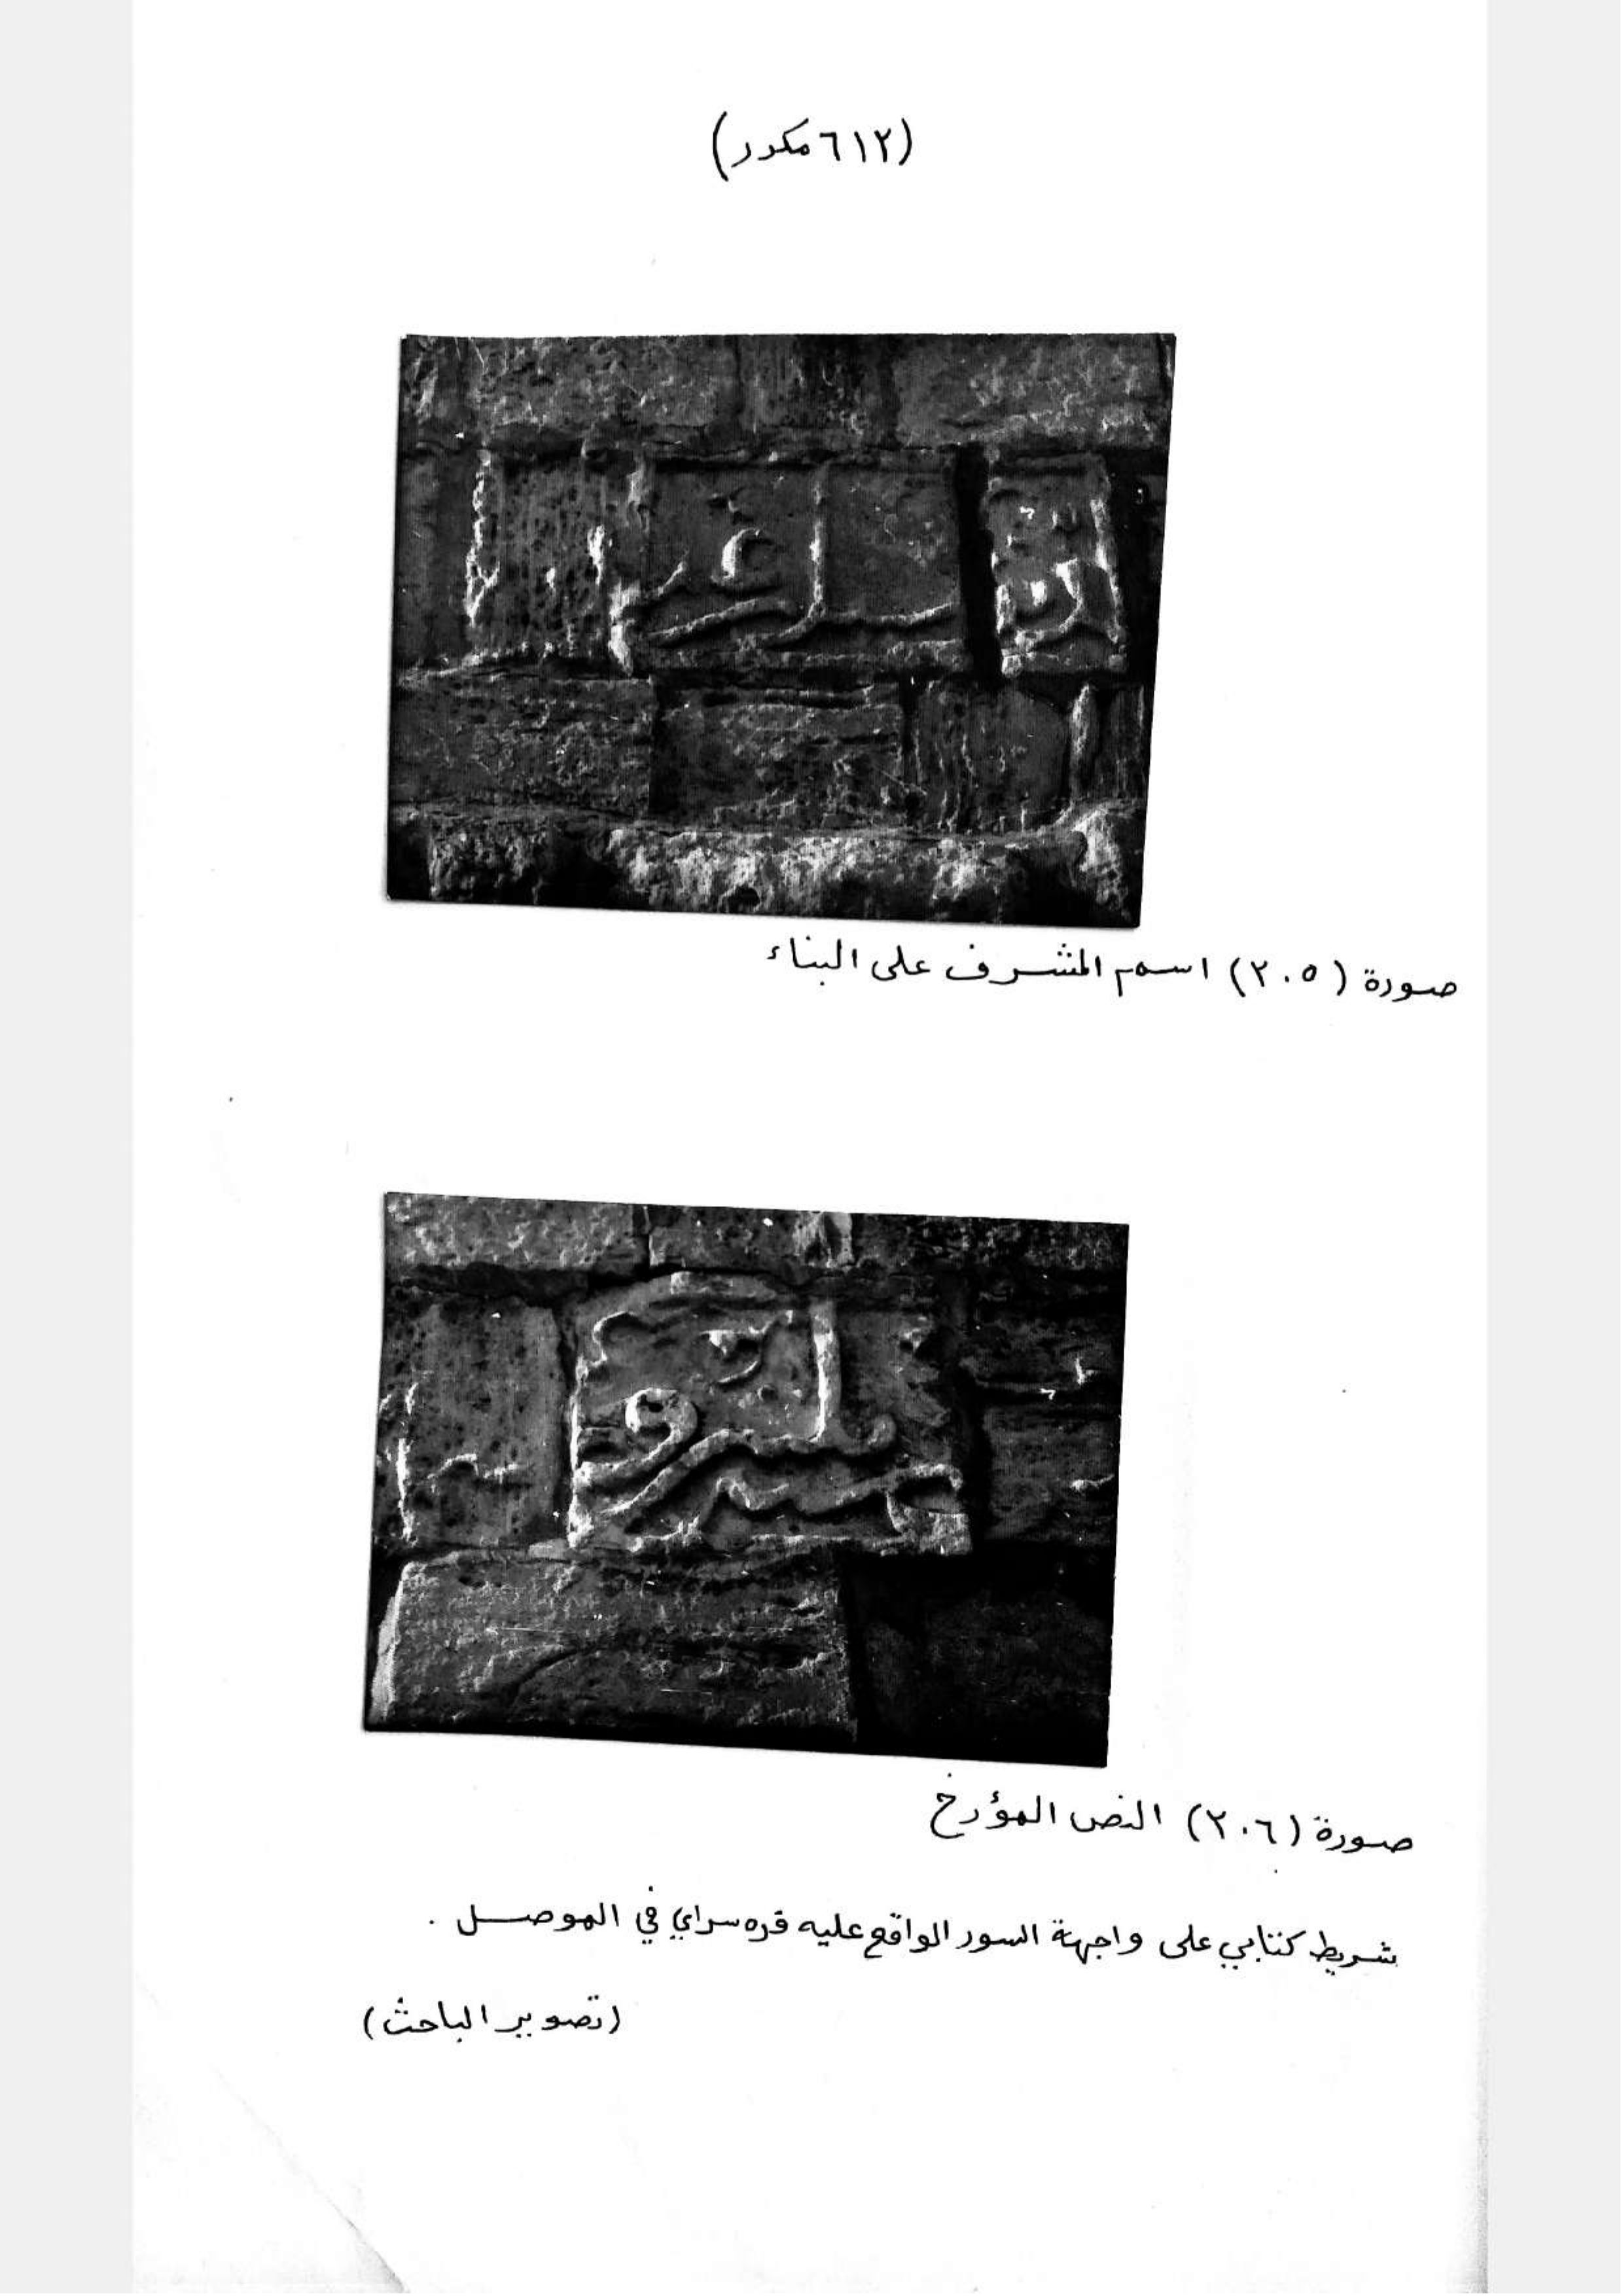 (٦١٢ مكرر)
صورة (٢٠٥) اسم المشرف على البناء
صورة (٢٠٦) النص المؤرخ
شريط كتابي على واجهة السور الواقع عليه قره سراي في الموصل .
(تصوير الباحث)